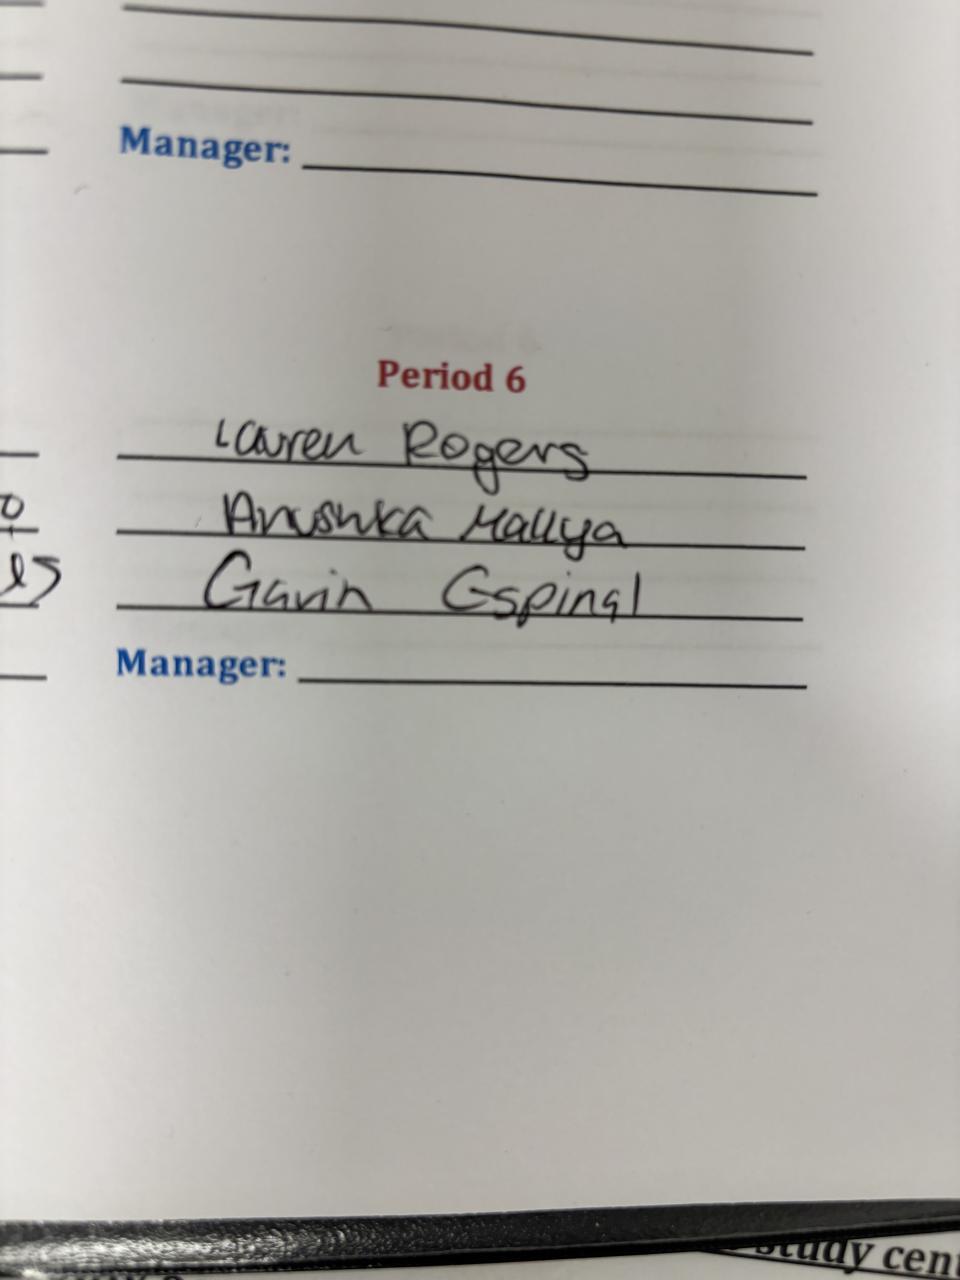 Manager:
Period 6
Lauren Rogers
Anushka Mallya
Gavin Espinal
Manager:
study cen